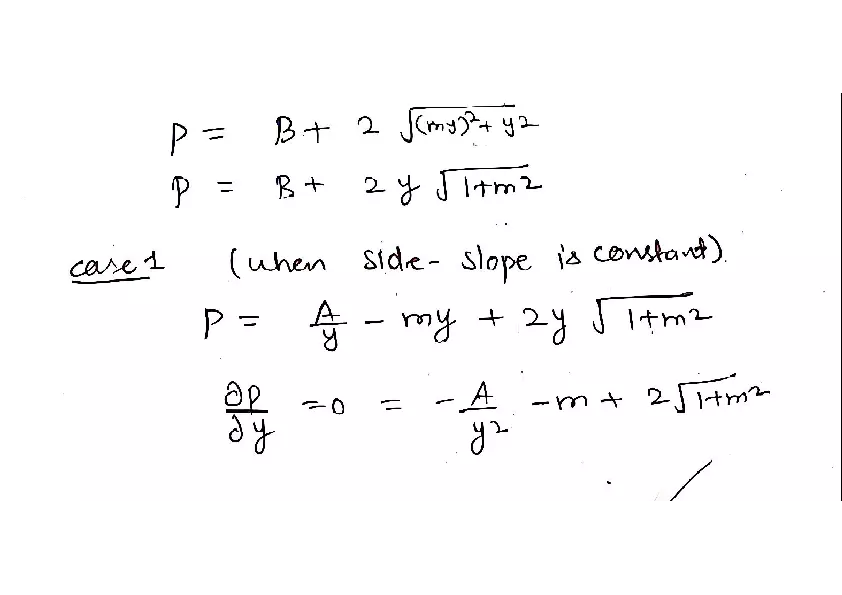 P = B + 2 √((my)² + y²)
P = B + 2y √(1+m²)
case 1 (when side-slope is constant).
P = A/y - my + 2y √(1+m²)
∂P/∂y = 0 = -A/y² - m + 2√(1+m²)